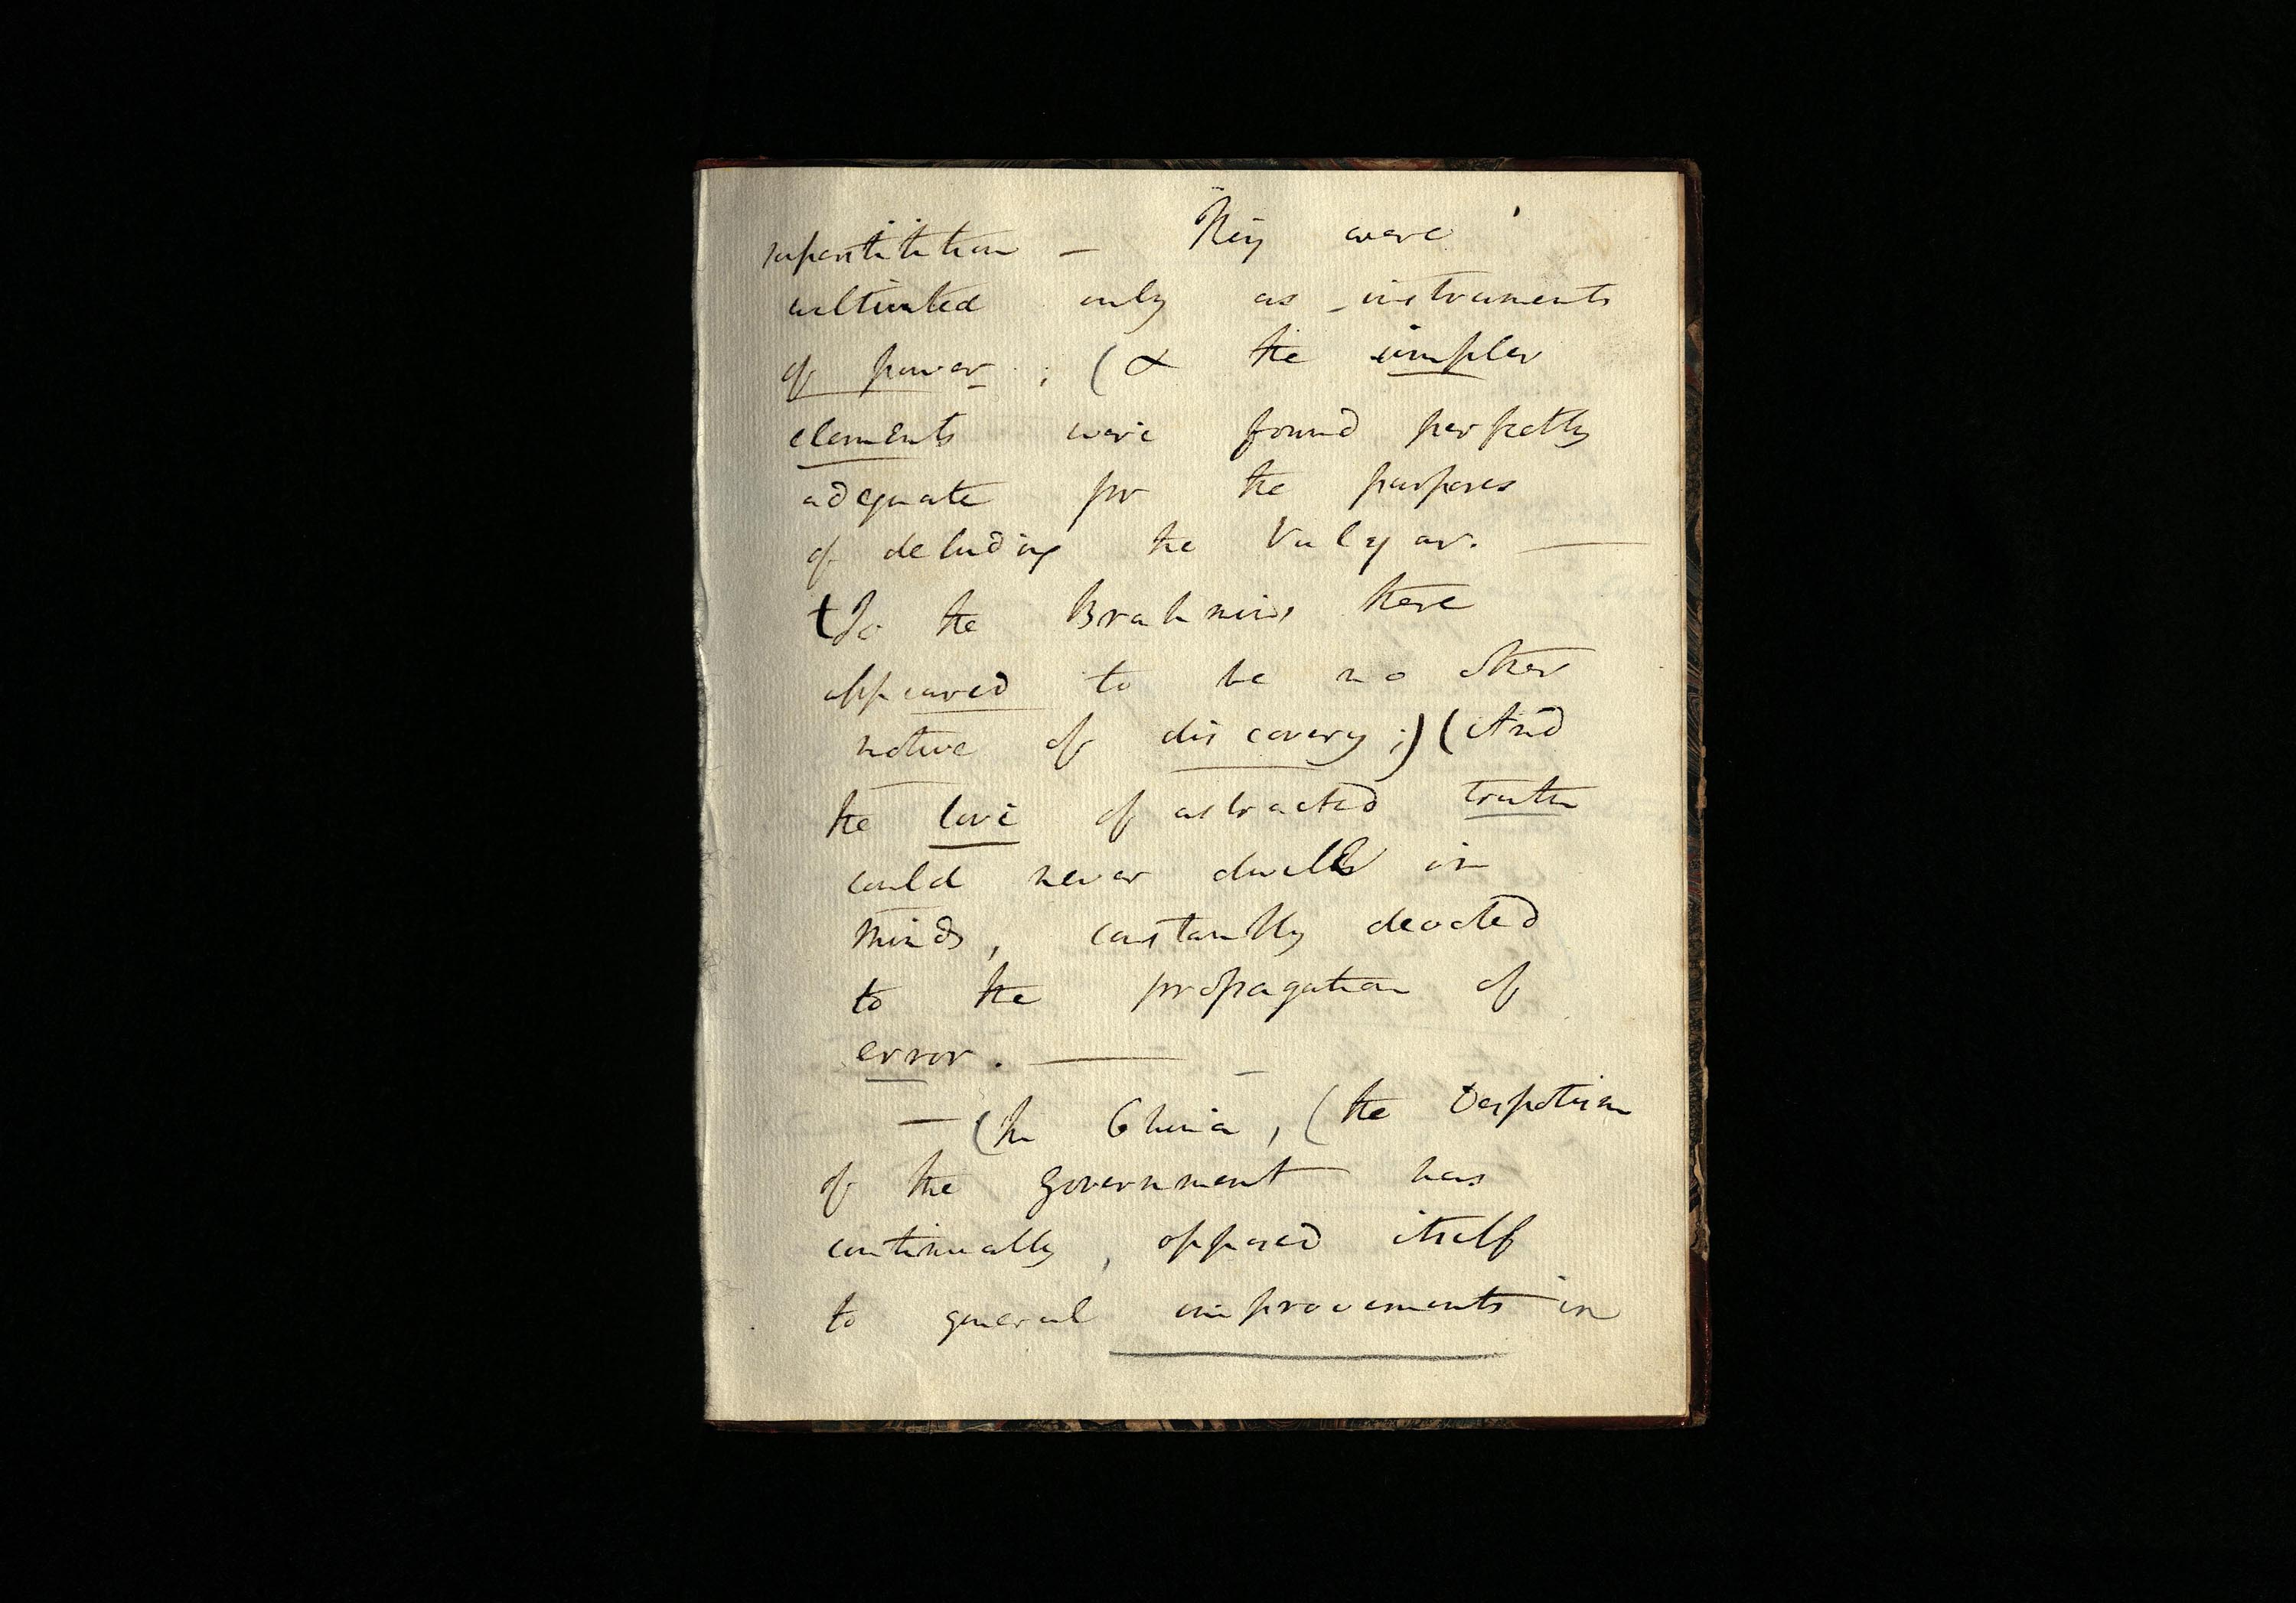 superstitution – They were
cultivated only as instruments
of power; (& the simpler
elements were found perfectly
adequate for the purposes
of deluding the Vulgar. —
To the Brahmins there
appeared to be no other
motive of discovery;) (And
the love of astracted truth
could never dwell in
minds, constantly devoted
to the propagation of
error. —
— (In China, (the Despotism
of the government has
continually, opposed itself
to general improvements in